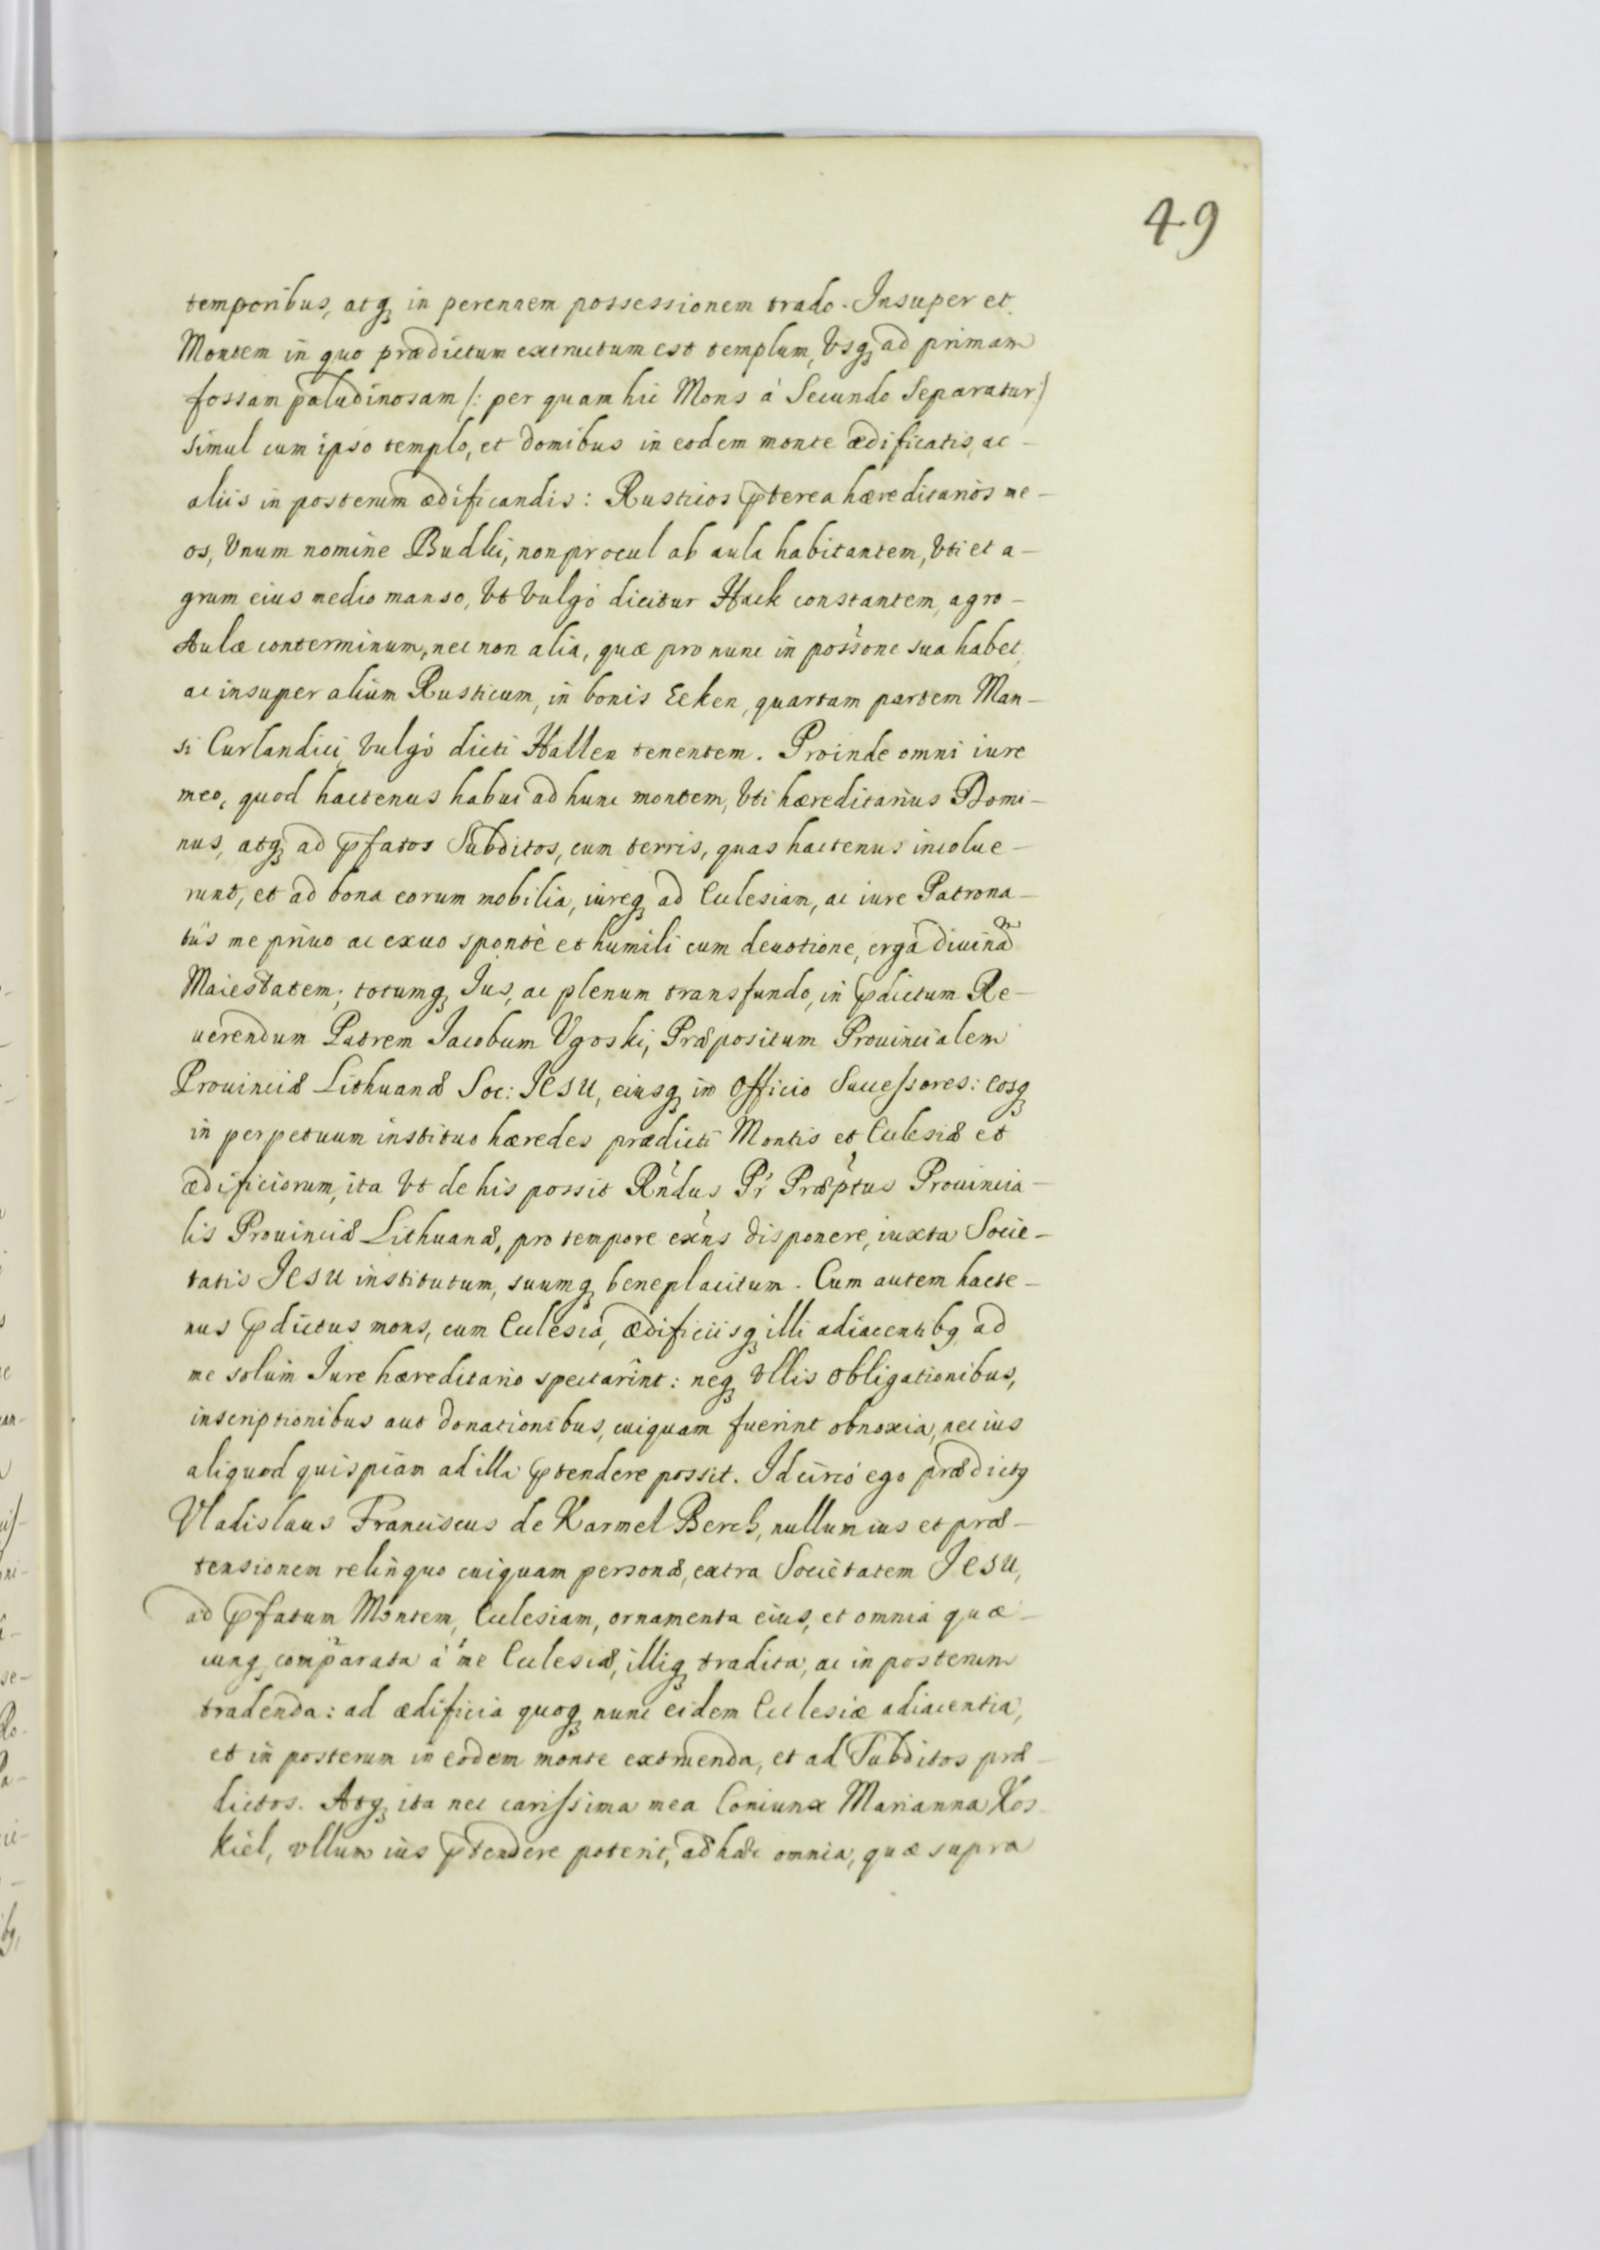 49
temporibus, atq3 in perennem possessionem trado. Insuper et
Montem in quo prædictum extructum est templum, Vsq3 ad primam
fossam paludinosam /: per quam hic Mons á Secundo Separatur/
simul cum ipso templo, et domibus in eodem monte ædificatis, ac –
aliis in posterum ædificandis: Rusticos p̄terea hæreditarios me –
os, Vnum nomine Budki, non procul ab aula habitantem, Vti et a –
grum eius medio manso, Vt Vulgò dicitur Hack constantem, agro –
Aulæ conterminum, nec non alia, quæ pro nunc in possone sua habet,
ac insuper alium Rusticum, in bonis Ecken, quartam partem Man –
si Curlandici, Vulgò dicti Hallen tenentem. Proinde omni iure
meo, quod hactenus habui ad hunc montem, Vti hæreditarius Domi –
nus, atq3 ad p̄fatos Subditos, cum terris, quas hactenus incolue –
runt, et ad bona eorum mobilia, iureq3 ad Ecclesiam, ac iure Patrona –
tûs me priuo ac exuo spontè et humili cum deuotione, erga diuinam
Maiestatem; totumq3 Ius, ac plenum transfundo, in p̄dictum Re –
uerendum Patrem Jacobum Vgoski, Præpositum Prouincialem
Prouinciæ Lithuanæ Soc: JESU, eiusq3 in Officio Successores: eosq3
in perpetuum instituo hæredes prædicti Montis et Ecclesiæ et
ædificiorum, ita Vt de his possit Rndus Pr Præptus Prouincia –
lis Prouinciæ Lithuanæ, pro tempore exns disponere, iuxta Socie –
tatis JESU institutum, suumq3 beneplacitum. Cum autem hacte –
nus p̄dictus mons, cum Ecclesiá, ædificiisq3 illi adiacentib9 ad
me solùm Jure hæreditario spectarint: neq3 Vllis obligationibus,
inscriptionibus aut donationibus, cuiquam fuerint obnoxia, nec ius
aliquod quispiam ad illa p̄tendere possit. Idcircò ego prædict9
Vladislaus Franciscus de Karmel Berch, nullum ius et præ –
tensionem relinquo cuiquam personæ, extra Societatem JESU,
ad p̄fatum Montem, Ecclesiam, ornamenta eius, et omnia quæ –
cunq3 comparata à me Ecclesiæ, illiq3 tradita, ac in posterum
tradenda: ad ædificia quoq3 nunc eidem Ecclesiæ adiacentia,
et in posterum in eodem monte extruenda, et ad Subditos præ –
dictos. Atq3 ita nec carissima mea Coniunx Marianna Kos
kiel, Vllum ius p̄tendere poterit, ad hæc omnia, quæ supra